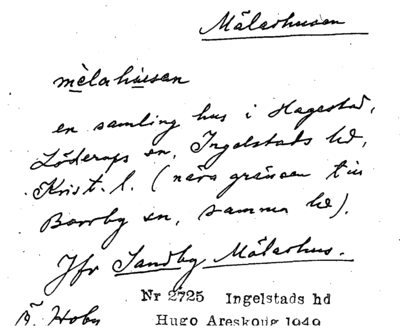 Mölarhusen
mølahusen
en samling hus i Hagestad,
Löderups sn, Ingelstads hd,
Krist. l. (nära gränsen till
Borrby sn, samma hd).
Jfr Sandby Mölarhus.
Nr 2725 Ingelstads hd
Hugo Areskoug 1949